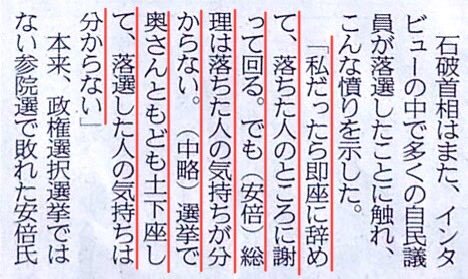 石破首相はまた、インタ
ビューの中で多くの自民議
員が落選したことに触れ、
こんな憤りを示した。
　「私だったら即座に辞め
て、落ちた人のところに謝
って回る。でも（安倍）総
理は落ちた人の気持ちが分
からない。（中略）選挙で
奥さんともども土下座し
て、落選した人の気持ちは
分からない」
　本来、政権選択選挙では
ない参院選で敗れた安倍氏